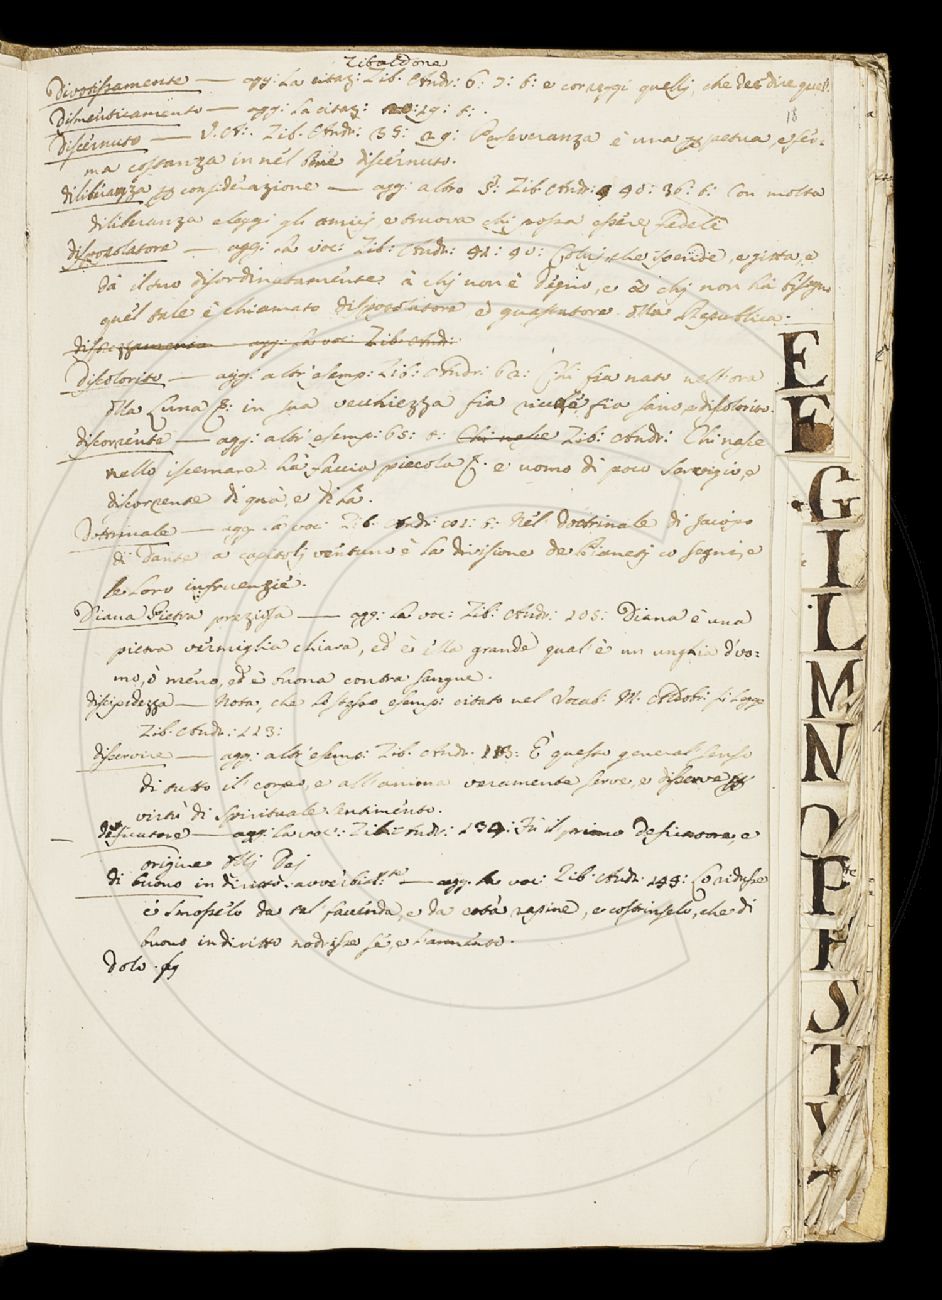 Zibaldone
Divotissamente — agg: la citaz: Zib: Andr: 6: 7: 6: e coraggi quelli, che dee dire questi.
Dimenticamento — agg: la citaz: 29: t: .
18
Discernuto — V. A. Zib: Andr: 35: 29: Perseveranza è una ppetua, e fer=
ma costanza in nel bene discernuto.
diliberanza pp considerazione — agg: altro S: Zib: Andr: 40: 36: t: Con molta
diliberanza eleggi gli amici, e truova chi possa essere fedele
dispocolatore — agg: la voc: Zib: Andr: 41: 40: Colui, che spende, e gitta, e
dà il suo disordinatamente à chi non è degno, e à chi non hà bisogno
quel tale è chiamato dispocolatore e guastatore della Republica.
agg: la voc: Zib: Andr:
Discolorito — agg: altri esemp: Zib: Andr: 60: Chi fia nato nell'ora
della Luna S: in sua vecchiezza fia fia sano, e discolorito.
discorrente — agg: altri esemp: 65: t: Chi nasce Zib: Andr: Chi nasce
nello iscemare hà faccia piccola e uomo di poco servigio, e
discorrente di quà, e di là.
Dotrinale — agg: la voc: Zib: Andr: 101: t: Nel doctrinale di Jacopo
di Dante a capitoli ventuno è la divisione de Pianeti co segni, e
le loro infruenzie.
Diana Pietra preziosa — agg: la voc: Zib: Andr: 105: Diana è una
pietra vermiglia chiara, ed è ella grande qual è un unghia d'uo=
mo, ò meno, ed è buona contra sangue.
discipidezza — Nota, che lo stesso esemp: citato nel Vocab: M: Aldobr: si legge
Zib: Andr: 113:
diservire — agg: altri esemp: Zib: Andr: 113: E questo general senso
di tutto il corpo, e all'anima veramente serve, e diserve pp
virtù di spirituale sentimento.
agg: la voc: Zib: Andr: 134: Fù il primo e
origine delli Dei
di buono in diritto avverbial:te — agg: la voc: Zib: Andr: 148:
è smossélo da tal facenda, e da cotà rapine, e costrinselo, che di
buono indiritto nodrisse sé, e l'armento.
Dolo
E
F
G
I
L
M
N
O
P
R
S
T
V